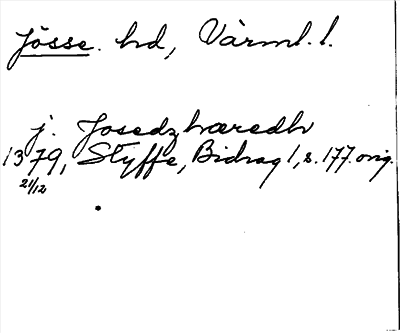 Jösse. hd, Värml. l.
j. Josedzhæredh
1379, Styffe, Bidrag 1, s. 177. orig.
21/12